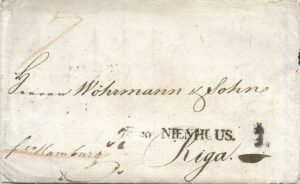 7
Herrn Wöhrmann & Sohn
NIENHUUS.
Riga.
fco Hamburg